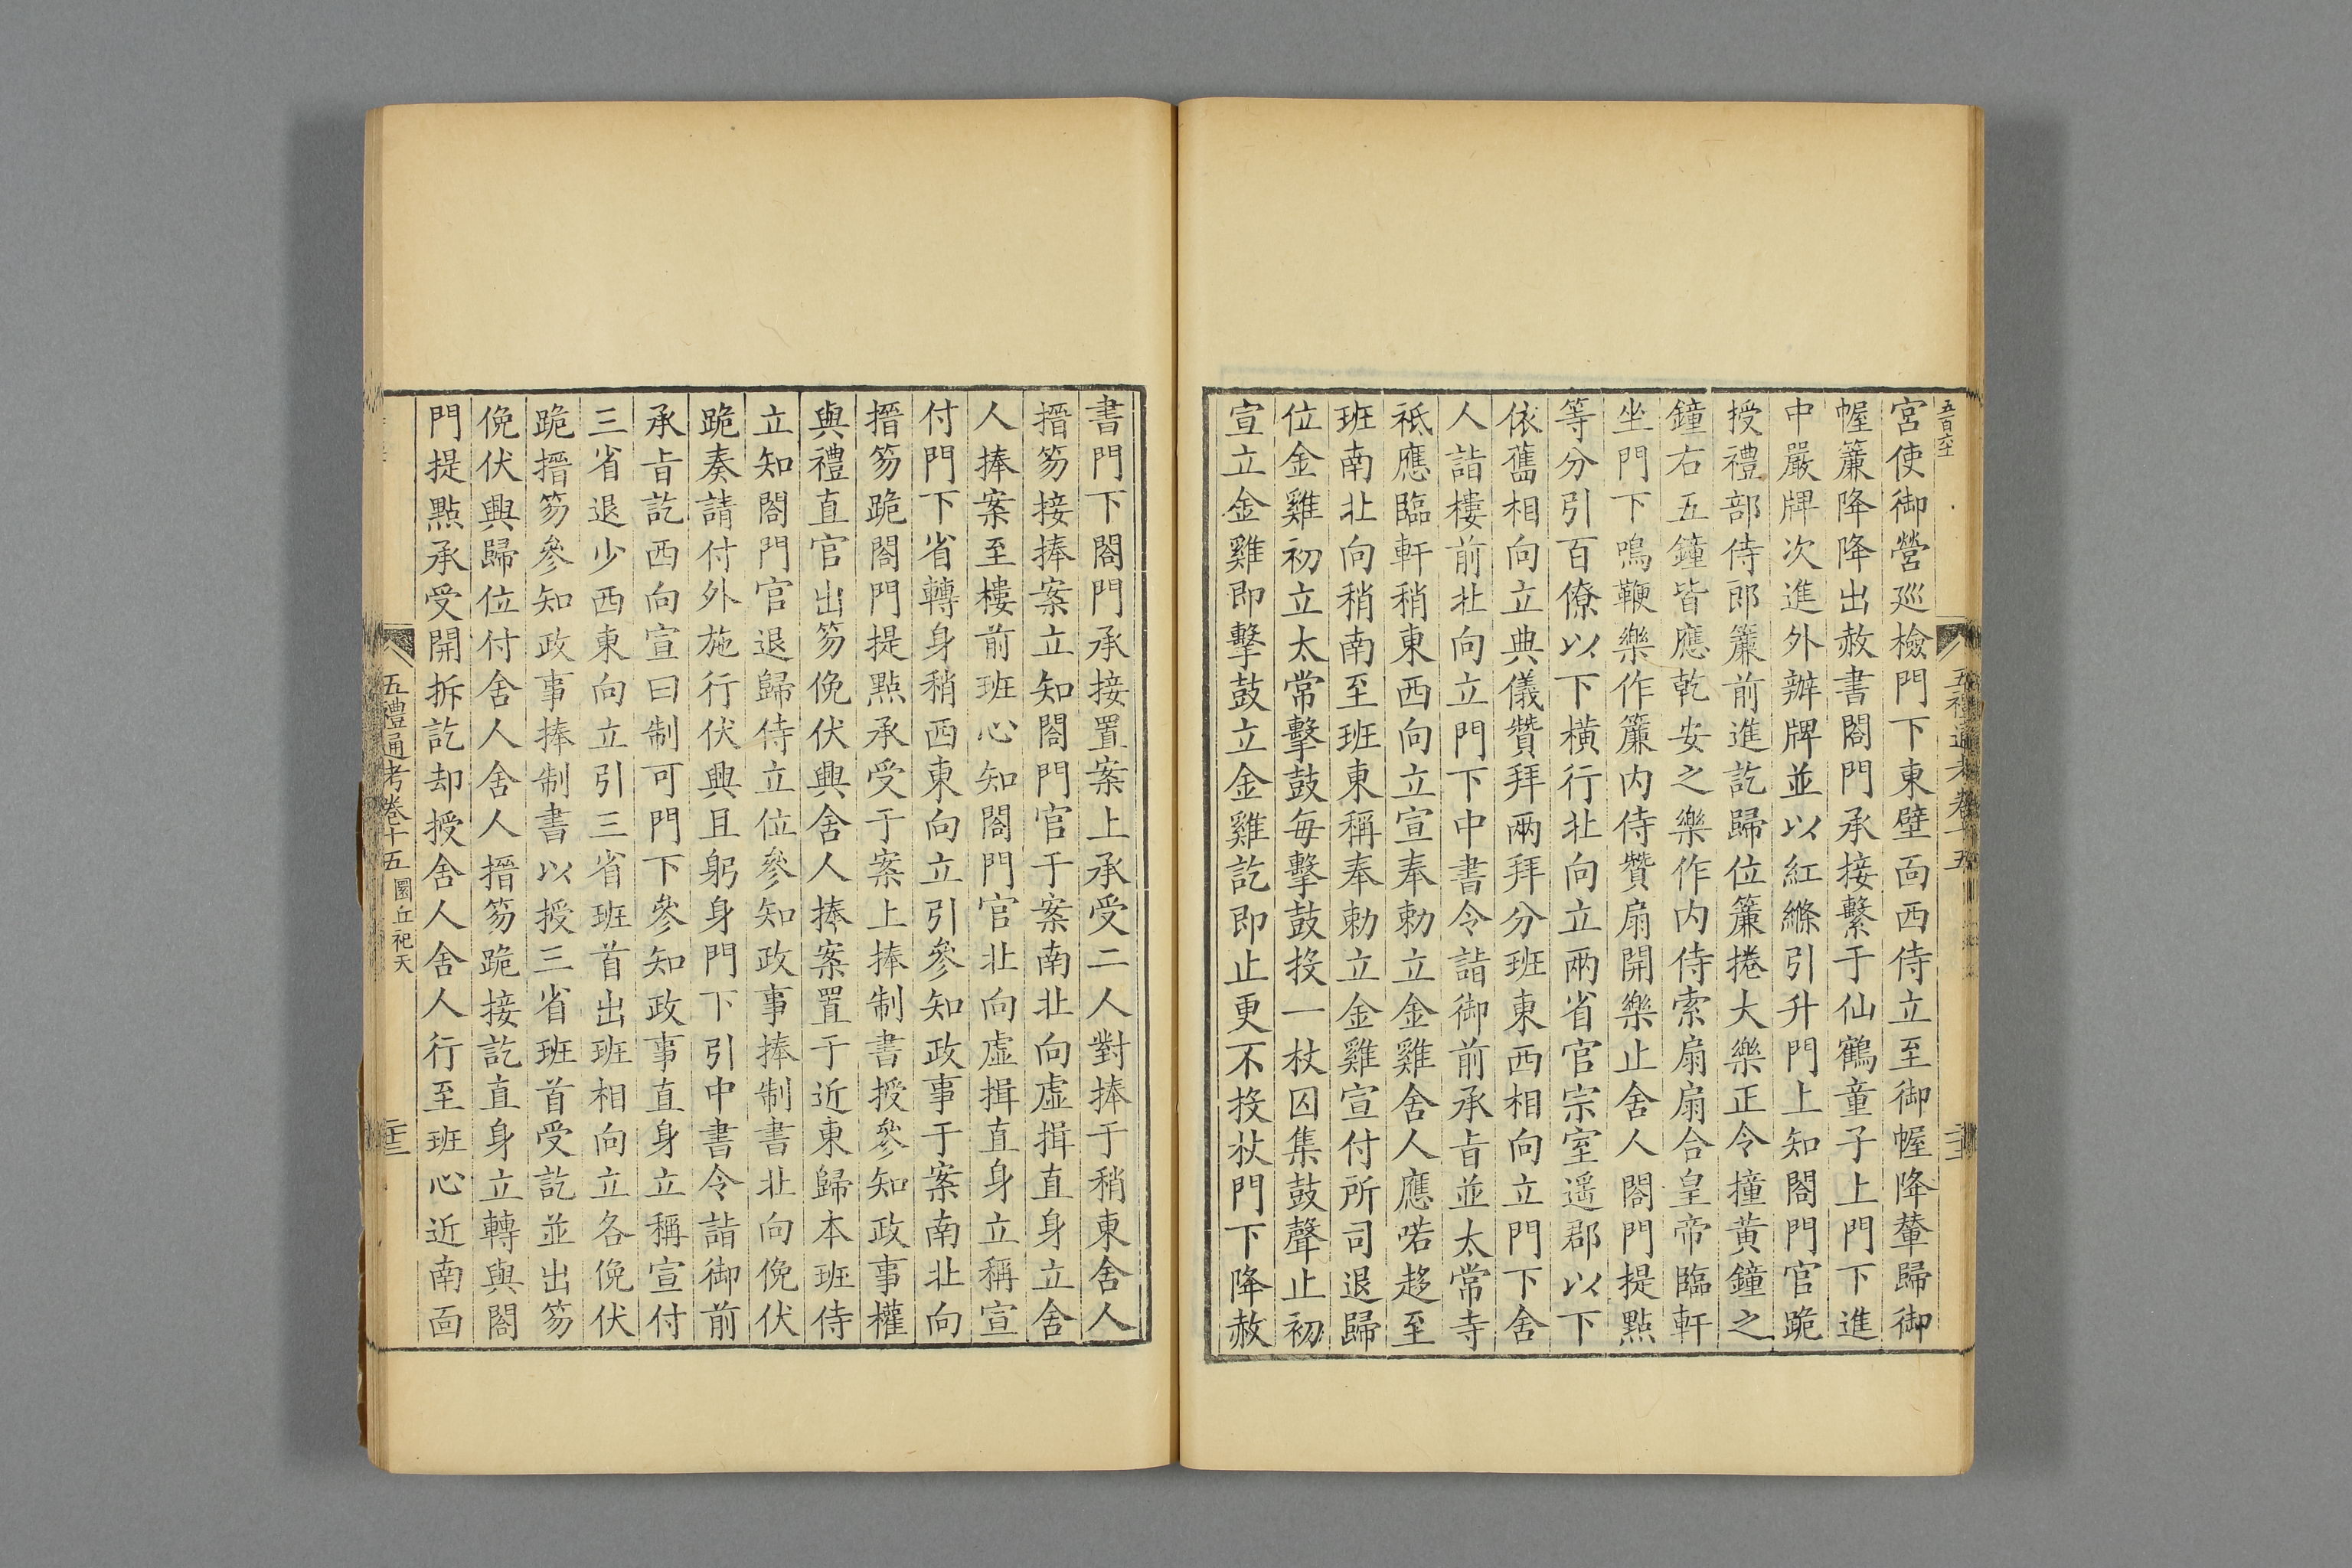 宮使御營廵檢門下東壁靣西侍立至御幄降輦歸御
幄簾降降出赦書閤門承接繫于仙鶴童子上門下進
中嚴牌次進外辦牌並以紅縧引升門上知閤門官跪
授禮部侍郎簾前進訖歸位簾捲大樂正令撞黄鐘之
鐘右五鐘皆應乾安之樂作内侍索扇扇合皇帝臨軒
坐門下鳴鞭樂作簾内侍贊扇開樂止舍人閤門提點
等分引百僚以下橫行北向立兩省官宗室遥郡以下
依舊相向立典儀贊拜兩拜分班東西相向立門下舍
人詣樓前北向立門下中書令詣御前承㫖並太常寺
祗應臨軒稍東西向立宣奉勅立金雞舍人應喏趍至
班南北向稍南至班東稱奉勅立金雞宣付所司退歸
位金雞初立太常擊鼓每擊鼓投一杖囚集鼓聲止初
宣立金雞即擊鼓立金雞訖即止更不投杖門下降赦
五禮通考卷十五
書門下閤門承接置案上承受二人對捧于稍東舍人
搢笏接捧案立知閤門官于案南北向虛揖直身立舍
人捧案至樓前班心知閤門官北向虛揖直身立稱宣
付門下省轉身稍西東向立引參知政事于案南北向
搢笏跪閤門提點承受于案上捧制書授參知政事權
與禮直官出笏俛伏興舍人捧案置于近東歸本班侍
立知閤門官退歸侍立位參知政事捧制書北向俛伏
跪奏請付外施行伏興且躬身門下引中書令詣御前
承㫖訖西向宣曰制可門下參知政事直身立稱宣付
三省退少西東向立引三省班首出班相向立各俛伏
跪搢笏參知政事捧制書以授三省班首受訖並出笏
俛伏興歸位付舍人舍人搢笏跪接訖直身立轉與閤
門提點承受開拆訖却授舍人舍人行至班心近南靣
五禮通考卷十五 圜丘祀天